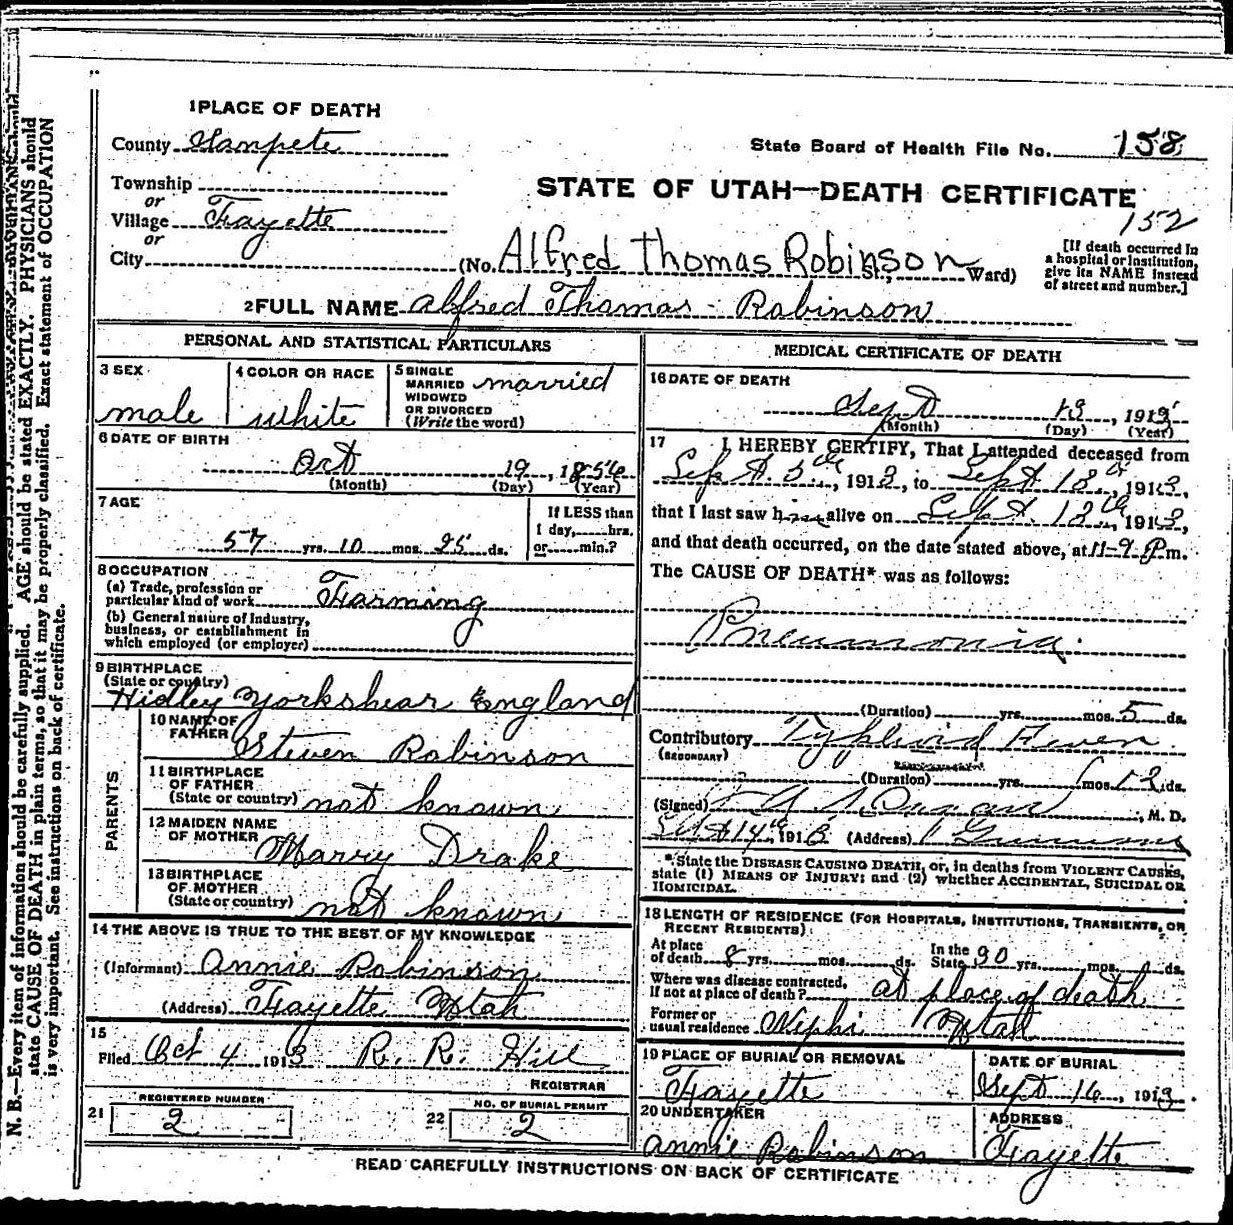 1 PLACE OF DEATH
County Sanpete
State Board of Health File No. 158
Township
or
Village Fayette
or
City
STATE OF UTAH—DEATH CERTIFICATE
152
[If death occurred in a hospital or institution, give its NAME instead of street and number.]
(No. Alfred Thomas Robinson St., Ward)
2 FULL NAME Alfred Thomas Robinson
PERSONAL AND STATISTICAL PARTICULARS
3 SEX
male
4 COLOR OR RACE
white
5 SINGLE
MARRIED
WIDOWED
OR DIVORCED
(Write the word)
married
6 DATE OF BIRTH
Oct 19, 1856
(Month) (Day) (Year)
7 AGE
57 yrs. 10 mos. 25 ds.
If LESS than
1 day, hrs.
or min.?
8 OCCUPATION
(a) Trade, profession or
particular kind of work Farming
(b) General nature of industry,
business, or establishment in
which employed (or employer)
9 BIRTHPLACE
(State or country)
Hidley Yorkshear England
PARENTS
10 NAME OF
FATHER
Steven Robinson
11 BIRTHPLACE
OF FATHER
(State or country) not known
12 MAIDEN NAME
OF MOTHER
Marry Drake
13 BIRTHPLACE
OF MOTHER
(State or country) not known
14 THE ABOVE IS TRUE TO THE BEST OF MY KNOWLEDGE
(Informant) Annie Robinson
(Address) Fayette Utah
15
Filed Oct 4 1913 R. R. Hill
REGISTRAR
REGISTERED NUMBER
21 2
NO. OF BURIAL PERMIT
22 2
MEDICAL CERTIFICATE OF DEATH
16 DATE OF DEATH
Sept 13, 1913
(Month) (Day) (Year)
17 I HEREBY CERTIFY, That I attended deceased from
Sept. 5th, 1913, to Sept 18th, 1913,
that I last saw him alive on Sept. 12th, 1913,
and that death occurred, on the date stated above, at 11-9 P m.
The CAUSE OF DEATH* was as follows:
Pneumonia
(Duration) yrs. mos. 5 ds.
Contributory Typhoid Fever
(SECONDARY)
(Duration) yrs. mos. 12 ds.
(Signed) M. D.
Sept 14th, 1913 (Address) Gunnison
*State the DISEASE CAUSING DEATH, or, in deaths from VIOLENT CAUSES,
state (1) MEANS OF INJURY; and (2) whether ACCIDENTAL, SUICIDAL OR
HOMICIDAL.
18 LENGTH OF RESIDENCE (FOR HOSPITALS, INSTITUTIONS, TRANSIENTS, OR
RECENT RESIDENTS)
At place
of death 8 yrs. mos. ds. In the State 90 yrs. mos. ds.
Where was disease contracted,
if not at place of death? at place of death
Former or
usual residence Nephi Utah
19 PLACE OF BURIAL OR REMOVAL
Fayette
DATE OF BURIAL
Sept 16, 1913
20 UNDERTAKER
Annie Robinson
ADDRESS
Fayette
READ CAREFULLY INSTRUCTIONS ON BACK OF CERTIFICATE
N. B.—Every item of information should be carefully supplied. AGE should be stated EXACTLY. PHYSICIANS should
state CAUSE OF DEATH in plain terms, so that it may be properly classified. Exact statement of OCCUPATION
is very important. See instructions on back of certificate.